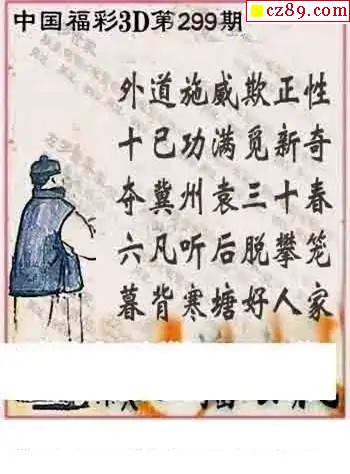 cz89.com
中国福彩3D第299期
外道施威欺正性
十己功满觅新奇
夺冀州袁三十春
六凡听后脱攀笼
暮背寒塘好人家